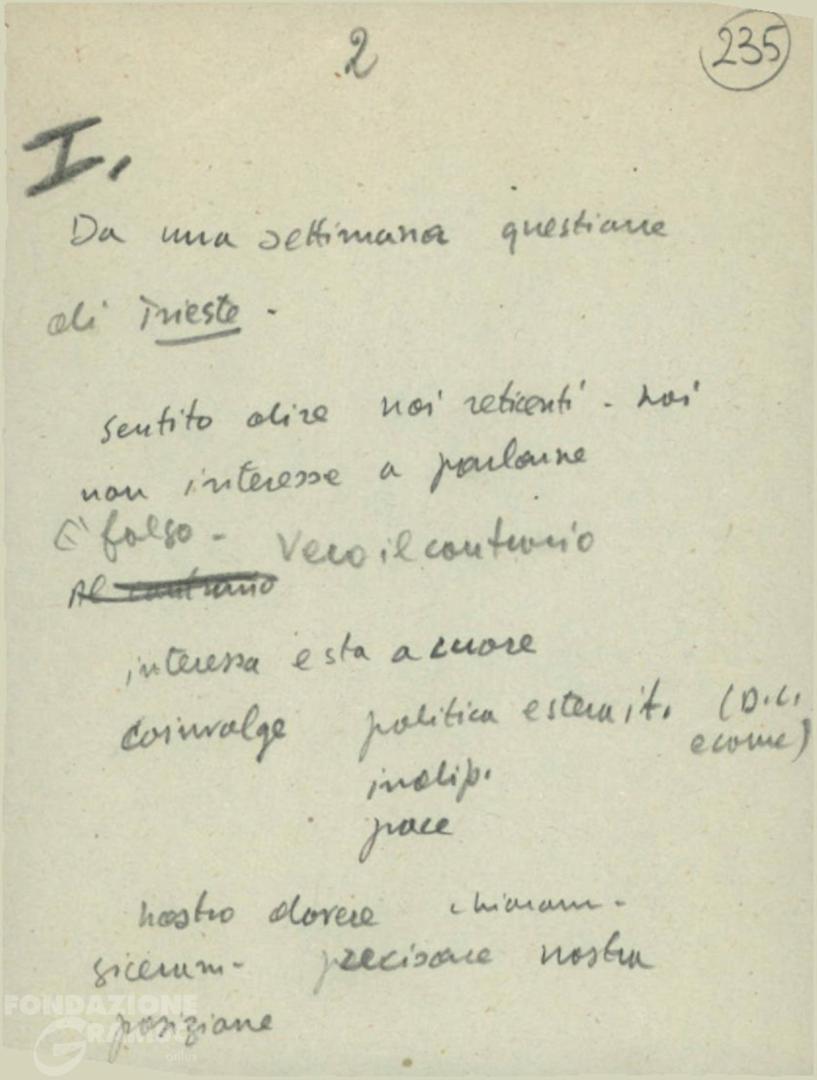 2
235
I.
Da una settimana questione
di Trieste.
sentito dire noi reticenti. noi
non interesse a parlarne
È falso. Vero il contrario
Al contrario
interessa e sta a cuore
coinvolge politica estera it. (D.C.
ecome)
indip.
pace
nostro dovere chiaram-
sinceram- precisare nostra
posizione
FONDAZIONE
GRAMSCI
onlus